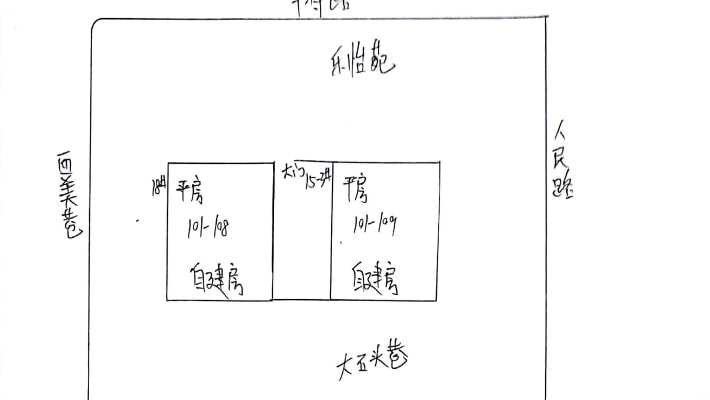 乐怡苑
人民路
西美巷
18#
平房
101-108
自建房
大门
15-3#
平房
101-109
自建房
大石头巷